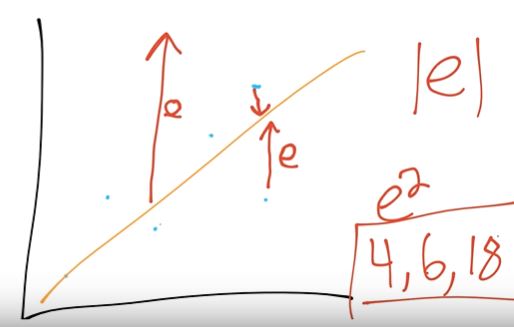 e
e
|e|
e²
4, 6, 18